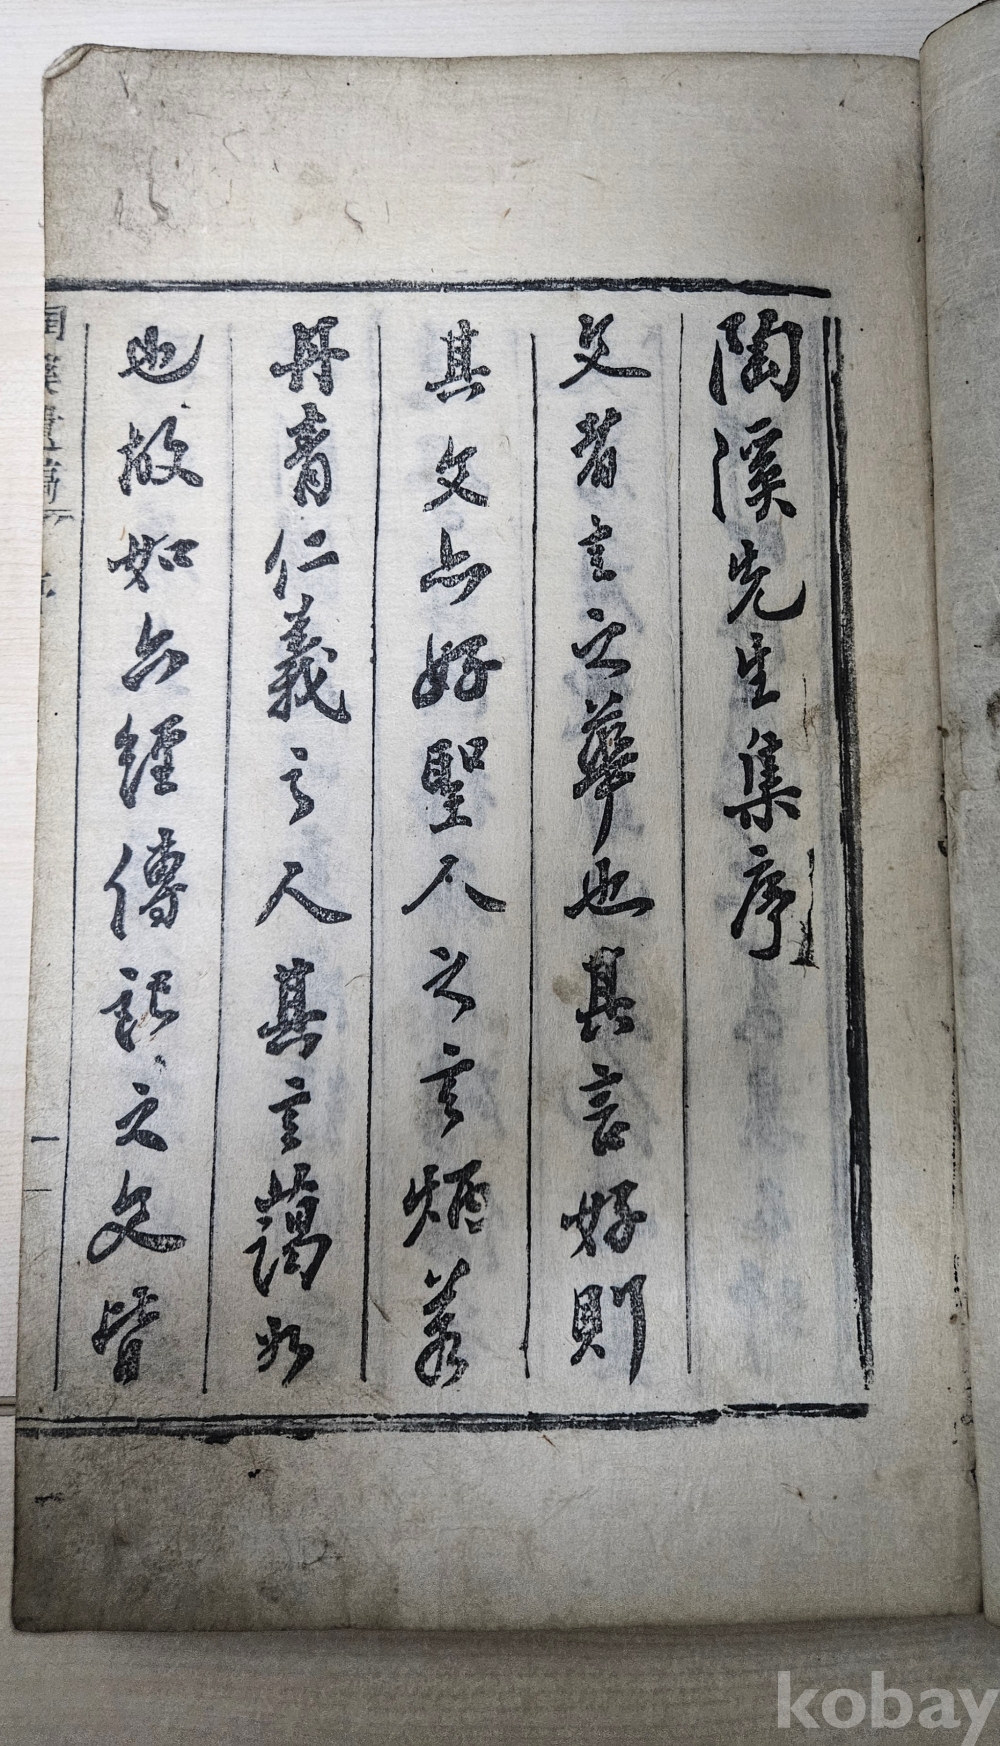 陶溪先生集序
文者言之華也其言好則
其文亦好聖人之言炳若
丹青仁義之人其言藹如
也故如六經傳記之文皆
kobay